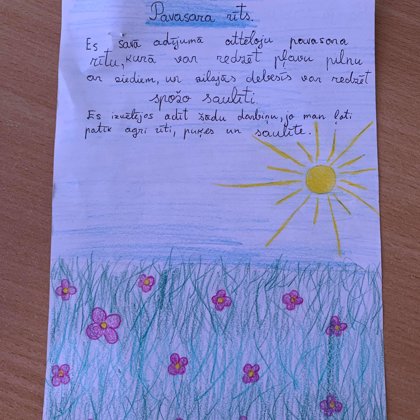 Pavasara rīts.
Es savā adījumā attēloju pavasara
rītu, kurā var redzēt pļavu pilnu
ar ziediem, un zilajās debesīs var redzēt
spožo saulīti.
Es izvēlējos adīt šādu darbiņu, jo man ļoti
patīk agri rīti, puķes un saulīte.